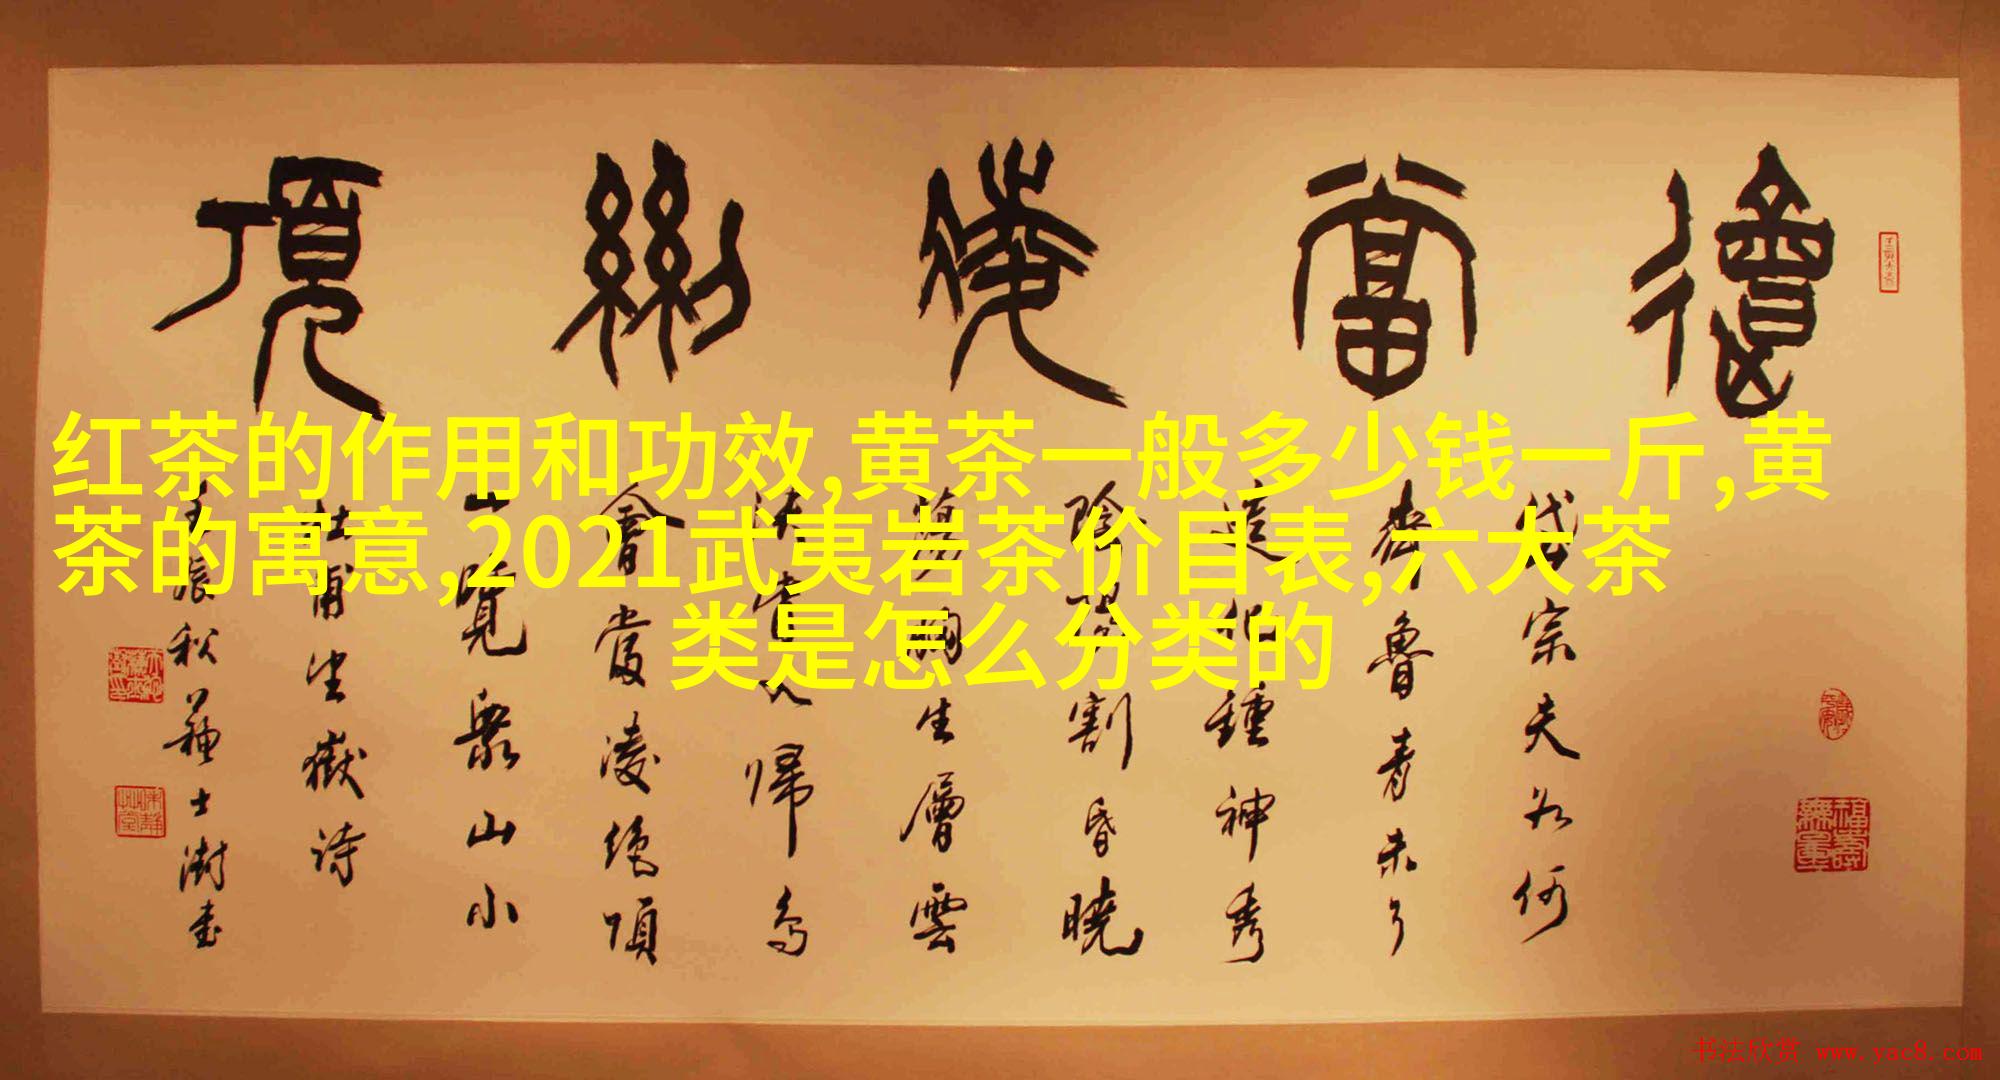 會當凌絕頂
岱宗夫如何
齊魯青未了
造化鍾神秀
陰陽割昏曉
蕩胸生層雲
決眥入歸鳥
會當凌絕頂
一覽眾山小
杜甫望嶽詩
壬辰秋蘇士澍書
福壽無量
红茶的作用和功效,黄茶一般多少钱一斤,黄
茶的寓意,2021武夷岩茶价目表,六大茶
类是怎么分类的
书法欣赏 www.yac8.com